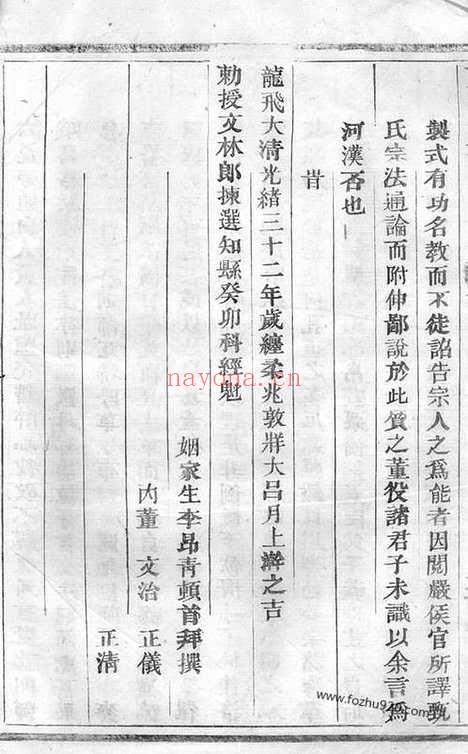 製式有功名教而不徒詔告宗人之爲能者因閱嚴侯官所譯甄
氏宗法通論而附伸鄙說於此質之董役諸君子未識以余言爲
河漢否也
昔
龍飛大清光緒三十二年歲纏柔兆敦牂大呂月上澣之吉
勅授文林郎揀選知縣癸卯科經魁
姻家生李昂青頓首拜撰
內董 文治 正儀
正清
nayona.cn
www.fozhu920.com